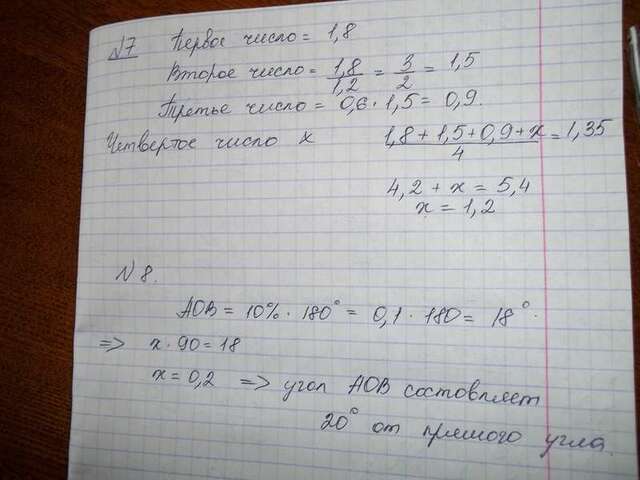 N7 Первое число = 1,8
Второе число = 1,8/1,2 = 3/2 = 1,5
Третье число = 0,6 · 1,5 = 0,9.
Четвертое число x (1,8 + 1,5 + 0,9 + x)/4 = 1,35
4,2 + x = 5,4
x = 1,2
N 8.
AOB = 10% · 180° = 0,1 · 180 = 18°.
=> x · 90 = 18
x = 0,2 => угол AOB составляет
20° от прямого угла.